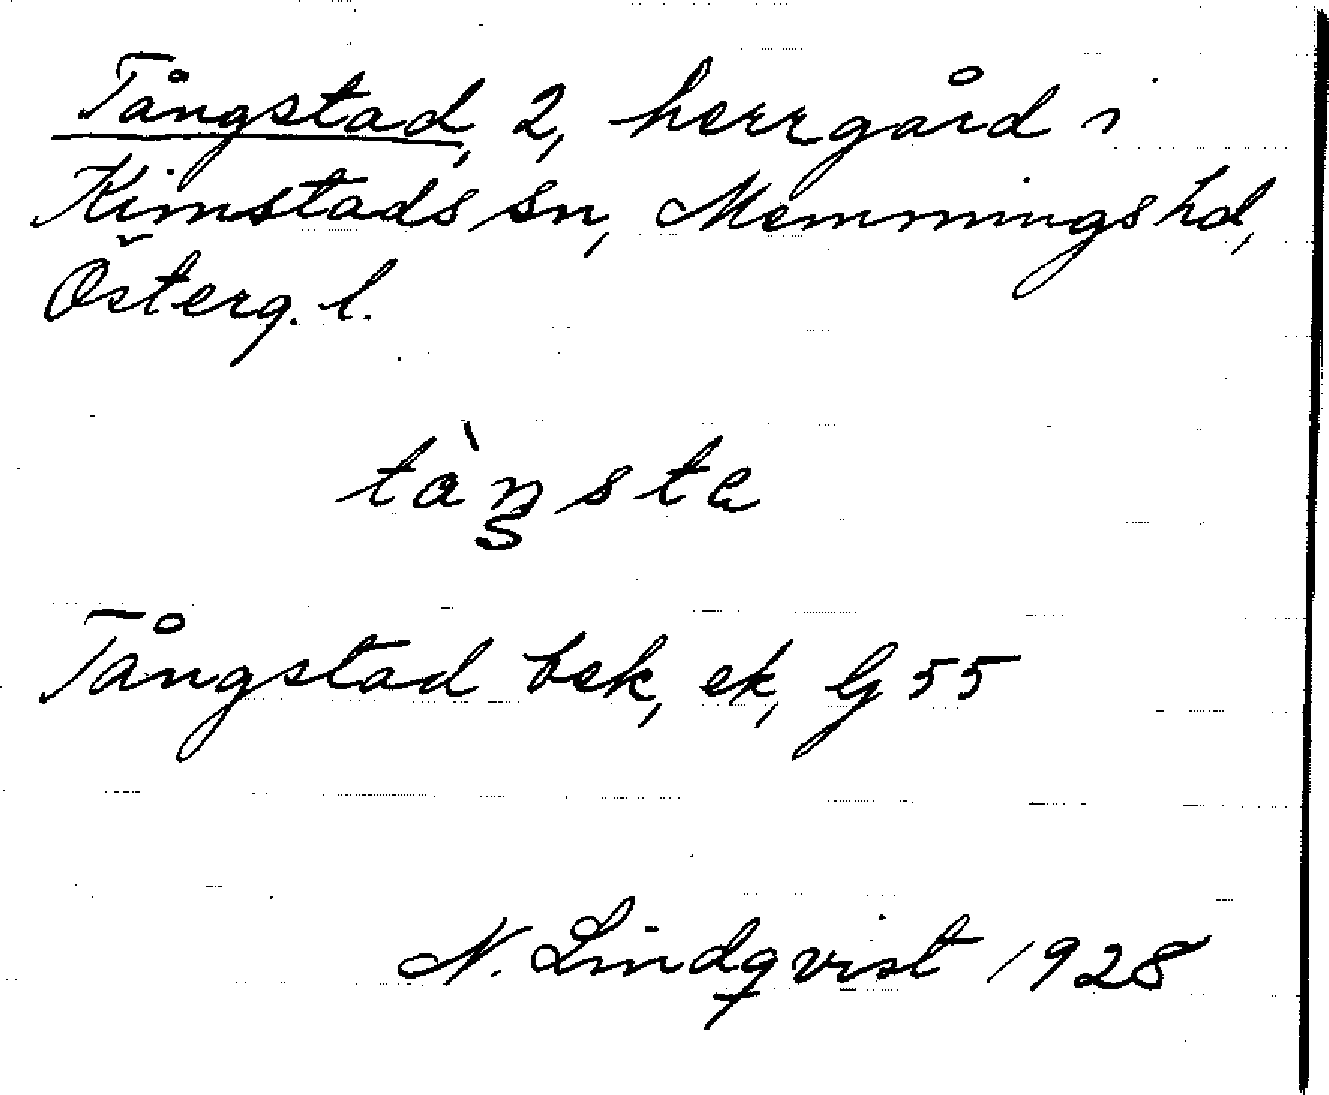 Tångstad, 2, herrgård i
Kimstads sn, Memmings hd,
Österg. l.
tàŋste
Tångstad bsk, ek, G 55
N. Lindqvist 1928